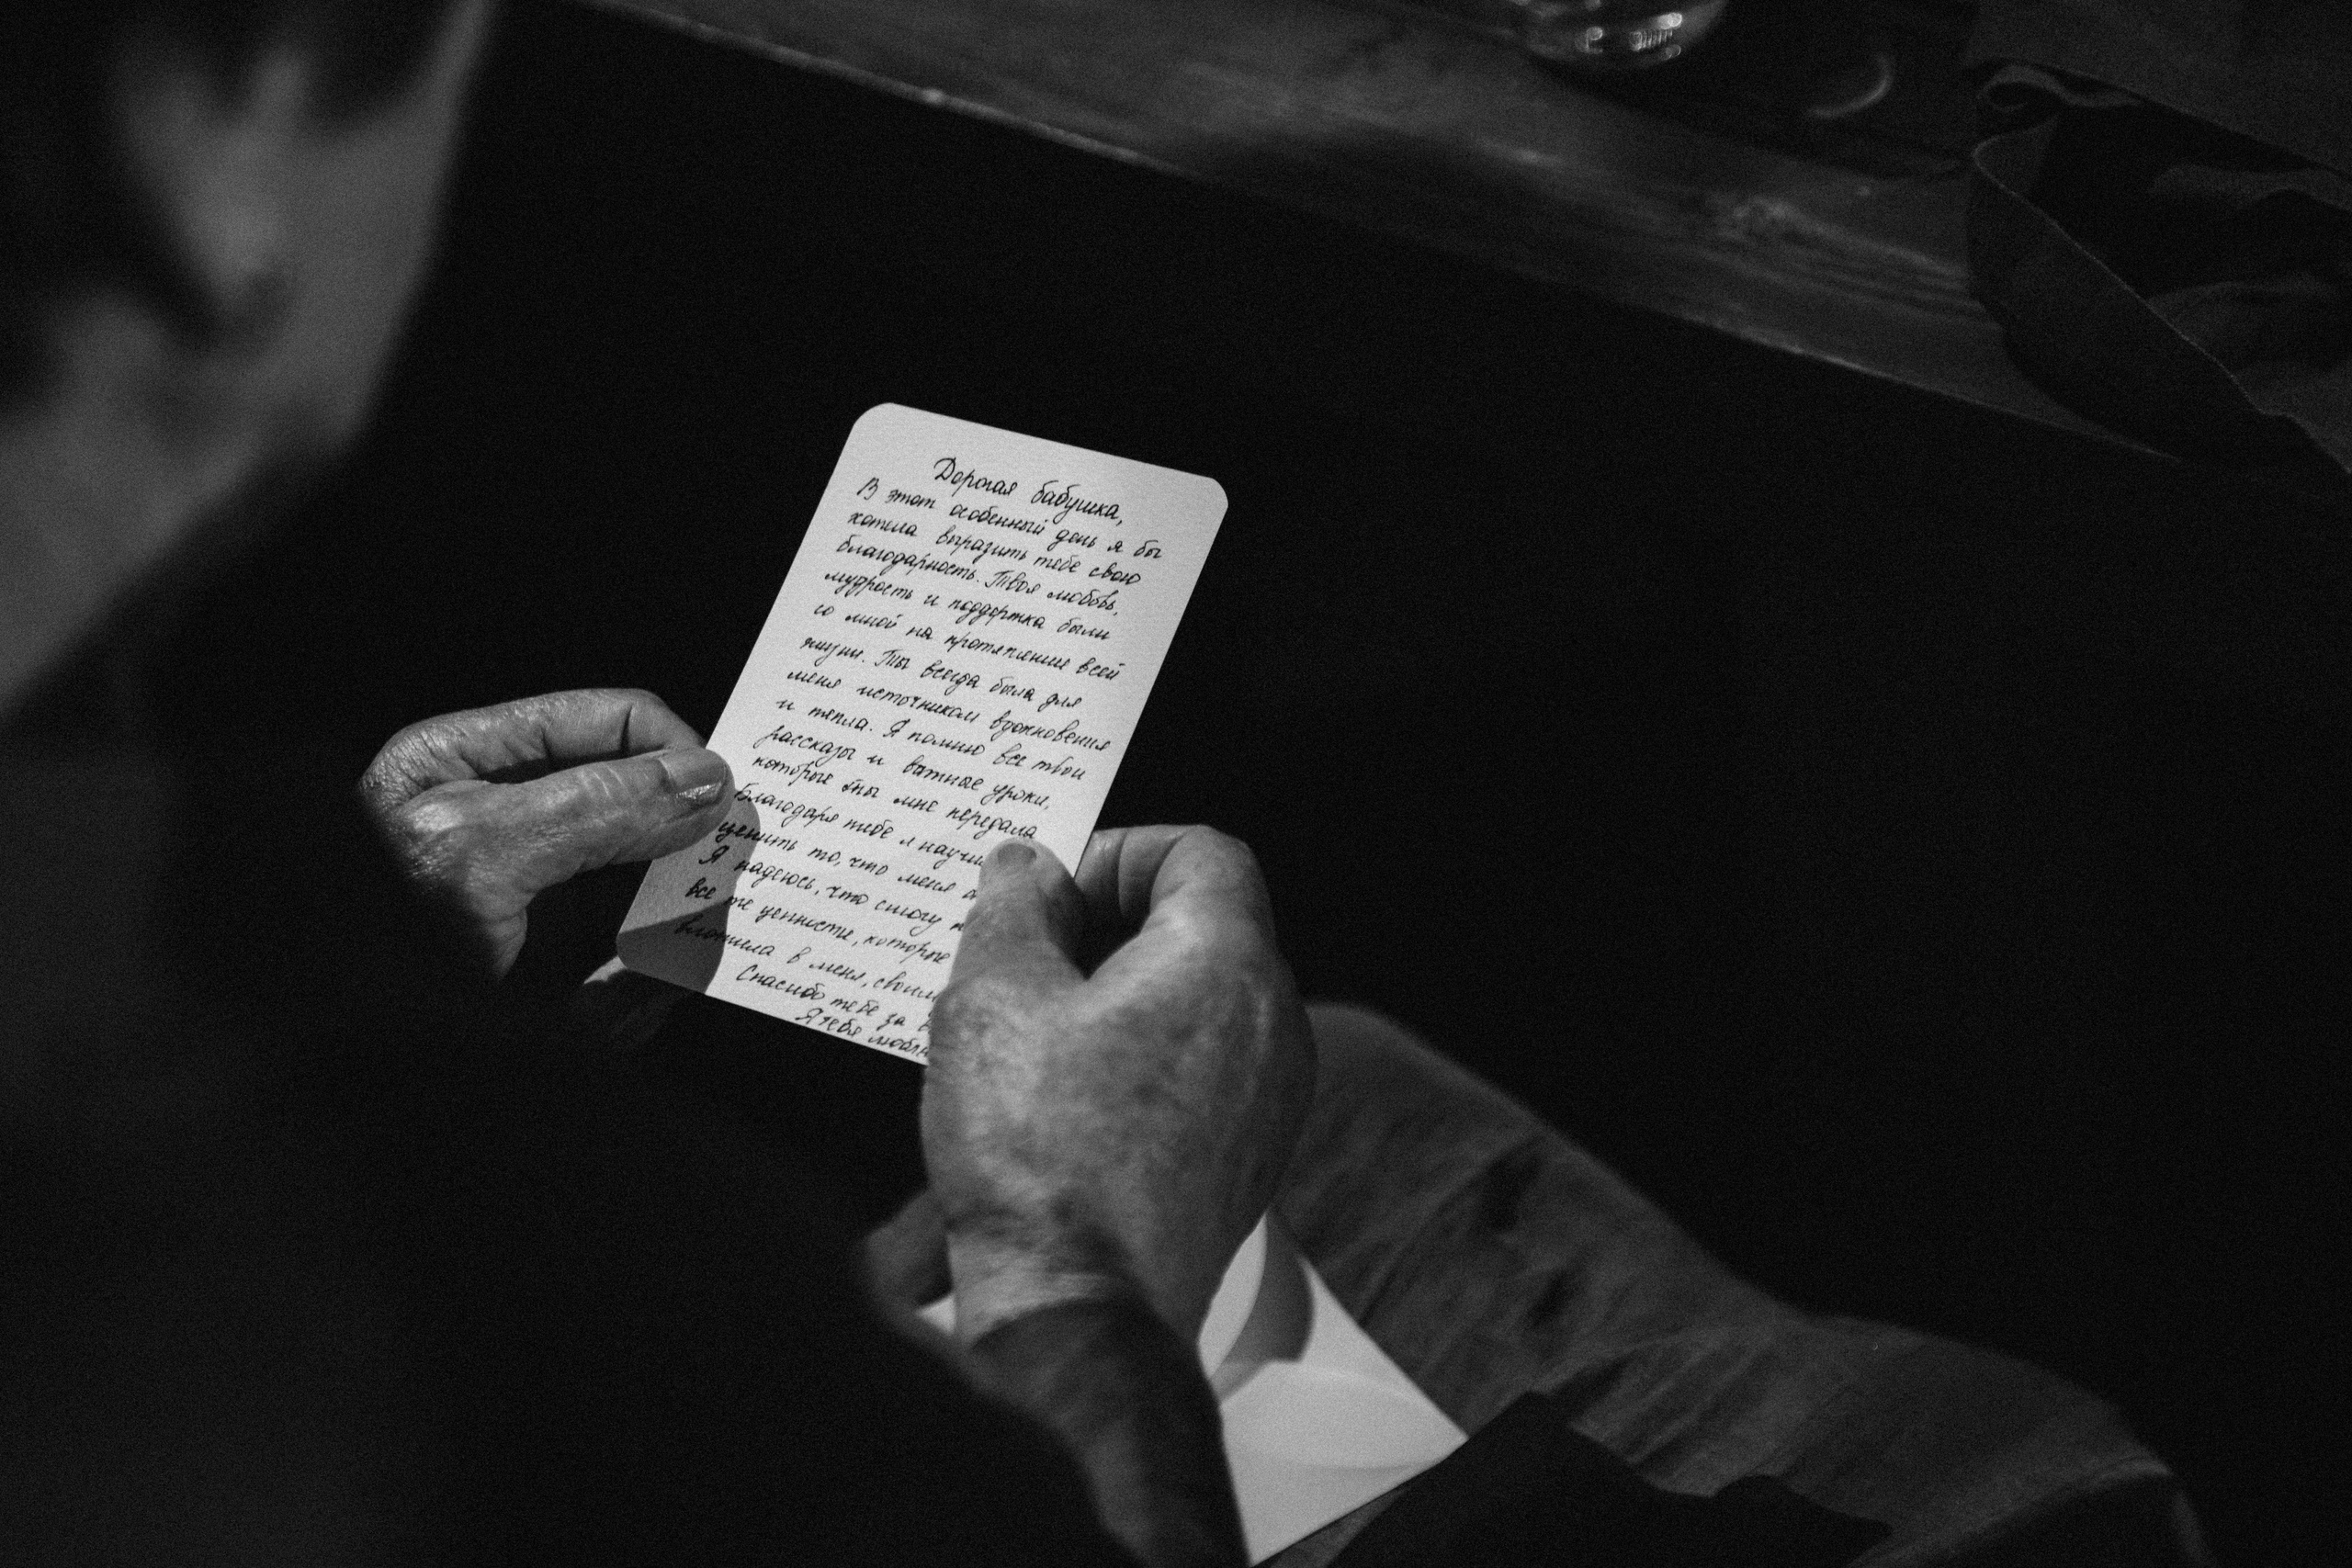 Дорогая бабушка,
В этот особенный день я бы
хотела выразить тебе свою
благодарность. Твоя любовь,
мудрость и поддержка были
со мной на протяжении всей
жизни. Ты всегда была для
меня источником вдохновения
и тепла. Я помню все твои
рассказы и важные уроки,
которые ты мне передала
Благодаря тебе я научи
ценить то, что меня
Я надеюсь, что смогу
все те ценности, которые
вложила в меня, своим
Спасибо тебе за
Я тебя люблю